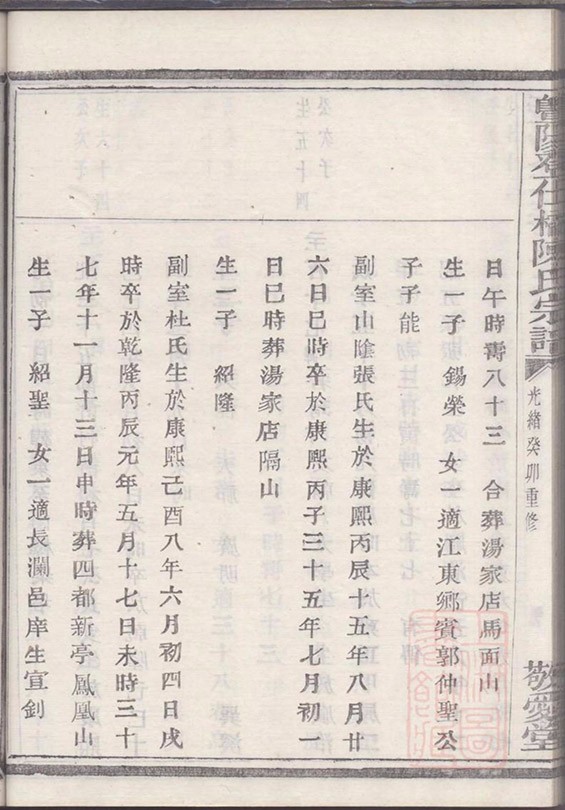 日午時壽八十三 合葬湯家店馬面山
生一子 錫榮 女一適江東鄉賓郭仲聖公
子子能
副室山陰張氏生於康熙丙辰十五年八月廿
六日巳時卒於康熙丙子三十五年七月初一
日巳時葬湯家店隔山
生一子 紹隆
副室杜氏生於康熙己酉八年六月初四日戌
時卒於乾隆丙辰元年五月十七日未時三十
七年十一月十三日申時葬四都新亭鳳凰山
生一子 紹聖 女一適長瀾邑庠生宣釗
陳氏宗譜
光緒癸卯重修
敬愛堂